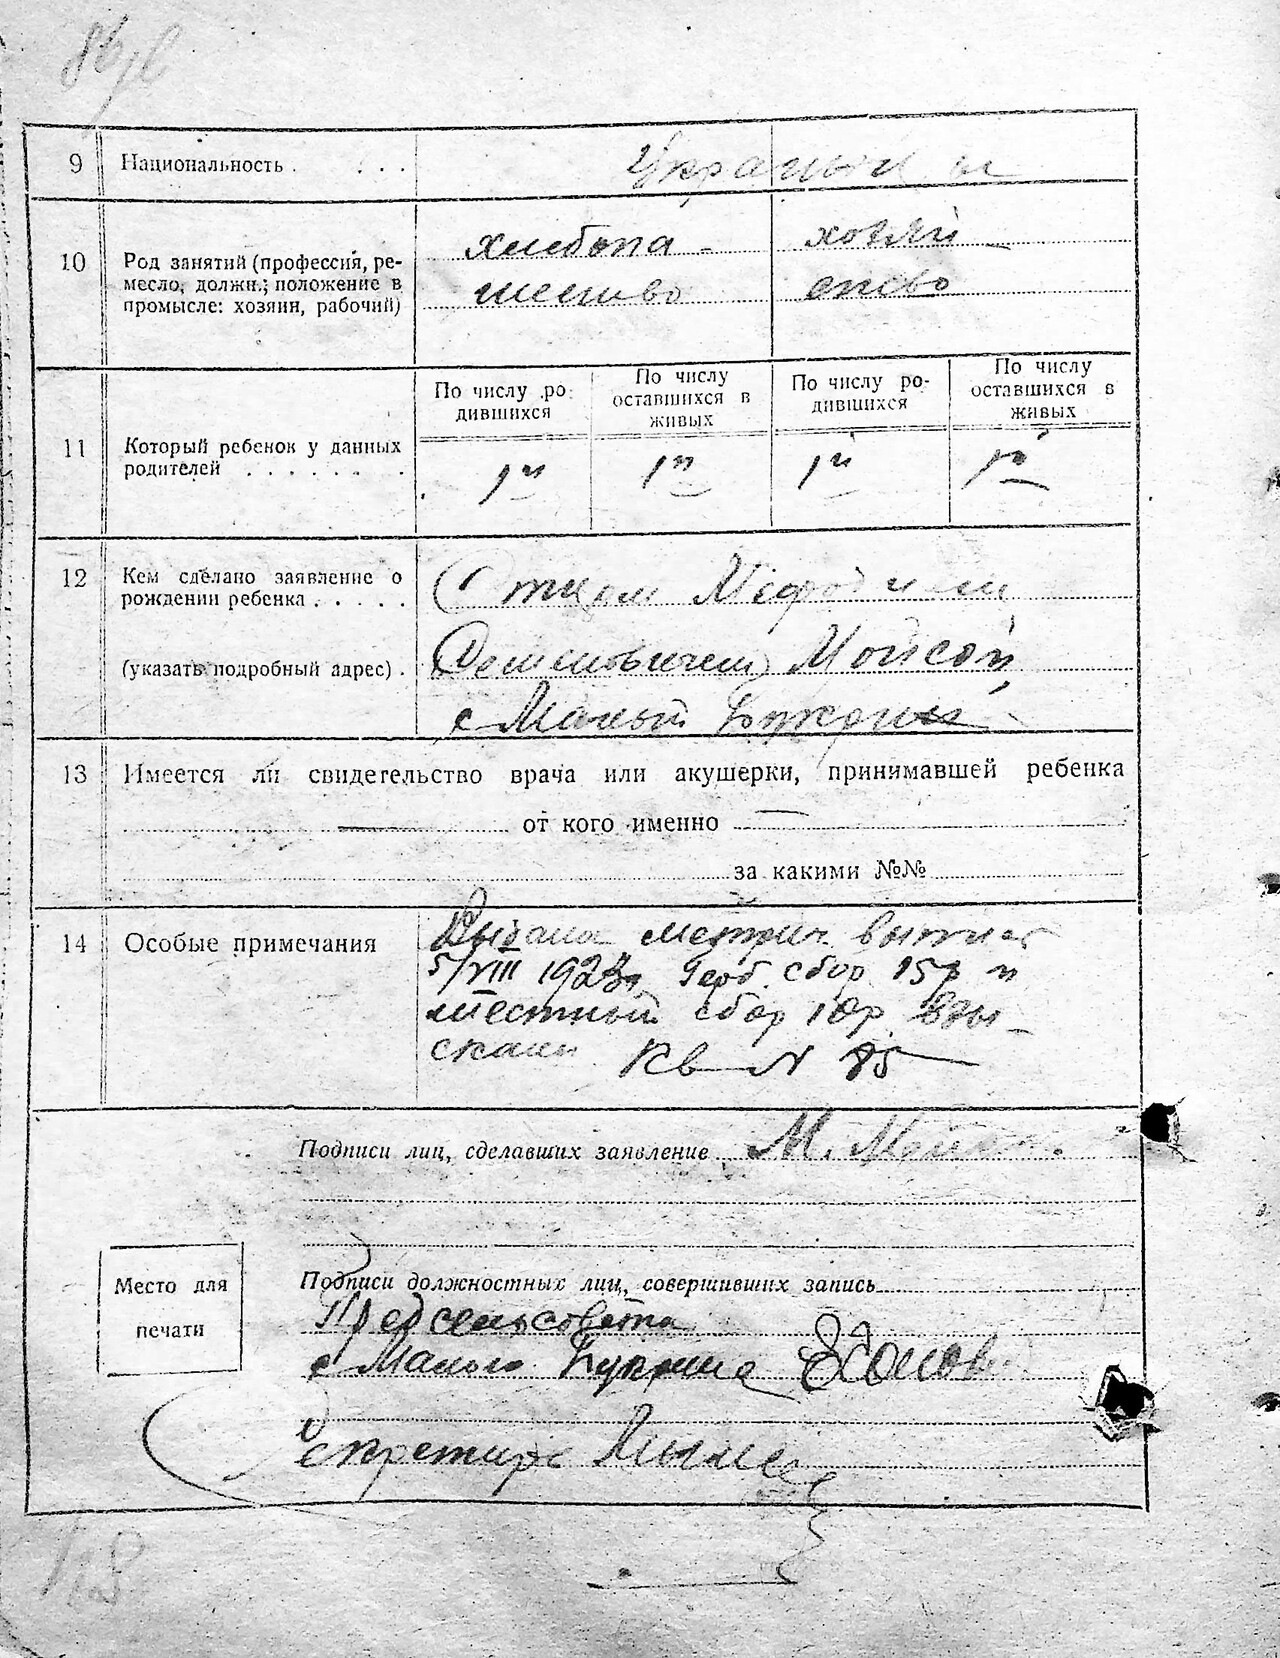 9 Национальность . . . . Украины
10 Род занятий (профессия, ре-
месло, должн.; положение в
промысле: хозяин, рабочий)
хлебопа- хозяй-
шество ство
11 Который ребенок у данных
родителей . . . . . . . .
По числу ро-
дившихся
По числу
оставшихся в
живых
По числу ро-
дившихся
По числу
оставшихся в
живых
1й 1й 1й 1й
12 Кем сделано заявление о
рождении ребенка . . . . .
(указать подробный адрес) .
Отцом Мефодием
Семеновичем Мойсой
с Малый Букрин
13 Имеется ли свидетельство врача или акушерки, принимавшей ребенка
от кого именно
за какими №№
14 Особые примечания
Выдана метрич. выпись
5/VIII 1923 Герб. сбор 15р и
местный сбор 10р взы-
сканы Кв N 85
Подписи лиц, сделавших заявление М.
Место для
печати
Подписи должностных лиц, совершивших запись
Предсельсовета
с Малого Букрина
Секретарь